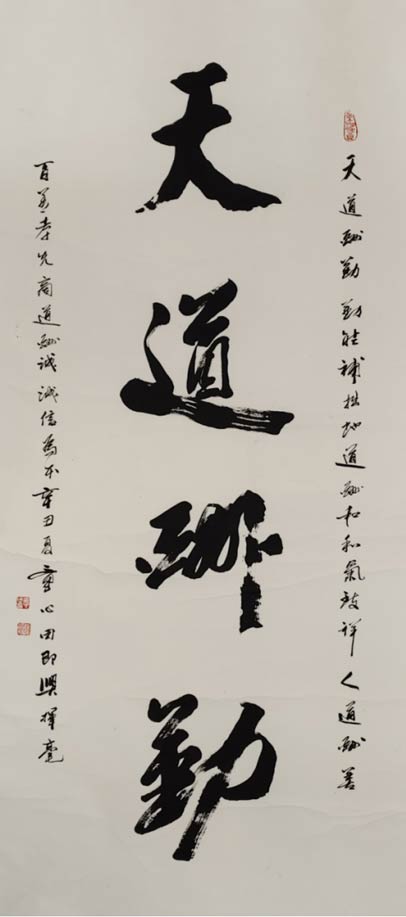 天道酬勤勤能補拙地道酬和和氣致祥人道酬善
天道酬勤
百善孝先商道酬诚诚信為本辛丑夏心田即興揮毫